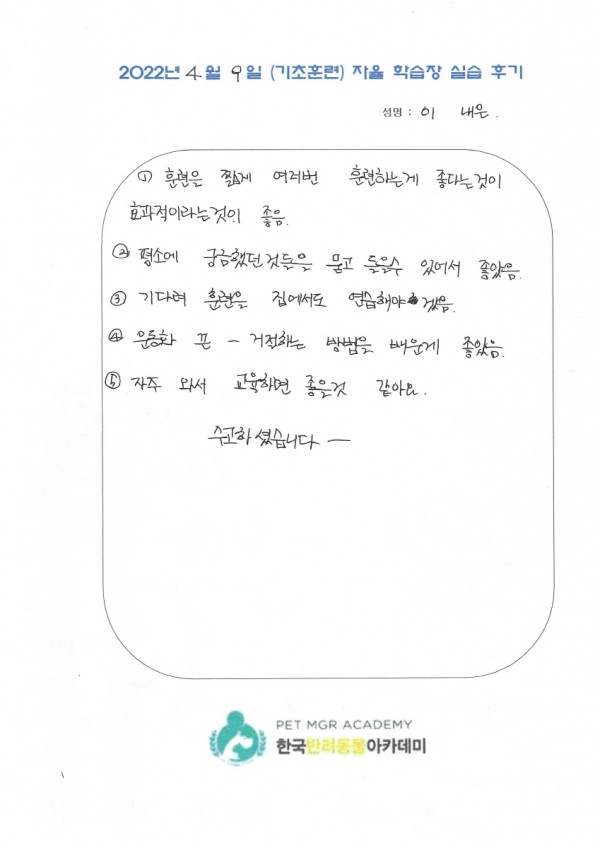 2022년 4월 9일 (기초훈련) 자율 학습장 실습 후기
성명 : 이 내은.
① 훈련은 짧게 여러번 훈련하는게 좋다는것이
효과적이라는것이 좋음.
② 평소에 궁금했던것들을 묻고 들을수 있어서 좋았음.
③ 기다려 훈련을 집에서도 연습해야 겠음.
④ 운동화 끈 - 거절하는 방법을 배운게 좋았음.
⑤ 자주 와서 교육하면 좋을것 같아요.
수고하셨습니다 -
PET MGR ACADEMY
한국반려동물아카데미